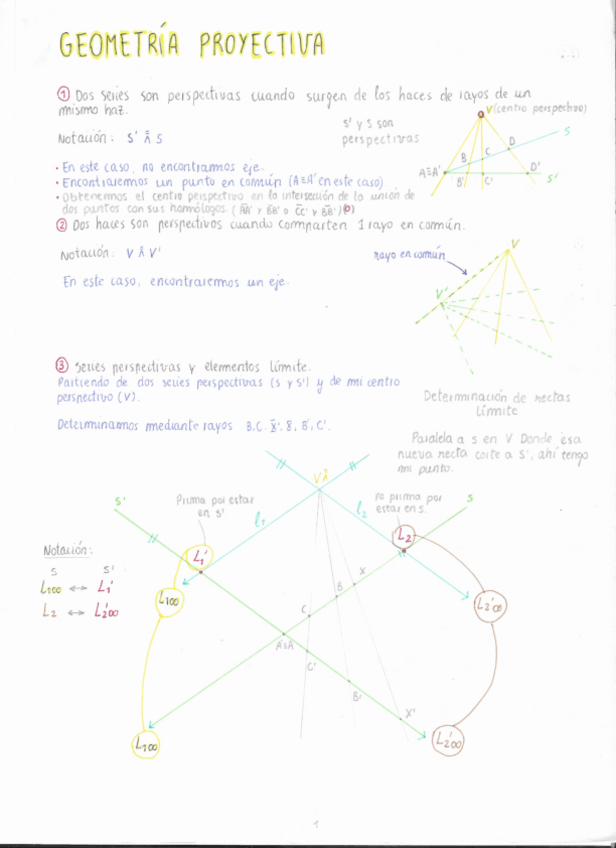 GEOMETRÍA PROYECTIVA
① Dos series son perspectivas cuando surgen de los haces de rayos de un
mismo haz.
Notación: S' ⩞ S
S' y S son
perspectivas
V (centro perspectivo)
S
D
C
B
A≡A'
B'
C'
D'
S'
• En este caso, no encontramos eje.
• Encontraremos un punto en común (A≡A' en este caso)
• Obtenemos el centro perspectivo en la intersección de la unión de
dos puntos con sus homólogos. (AA' y BB' o CC' y BB')
② Dos haces son perspectivos cuando comparten 1 rayo en común.
Notación: V ⩞ V'
rayo en común
V
V'
En este caso, encontraremos un eje.
③ Series perspectivas y elementos límite.
Partiendo de dos series perspectivas (S y S') y de mi centro
perspectivo (V).
Determinamos mediante rayos B, C,
B', C'.
Determinación de rectas
Límite
Paralela a s en V. Donde esa
nueva recta corte a S', ahí tengo
mi punto.
V
S'
Prima por estar
en S'
l1
l2
no prima por
estar en S.
S
L1'
L2
Notación:
S S'
L1∞ <-> L1'
L2 <-> L2'∞
L1∞
L2'∞
X
B
C
A'≡A
C'
B'
X'
L1∞
L2'∞
1